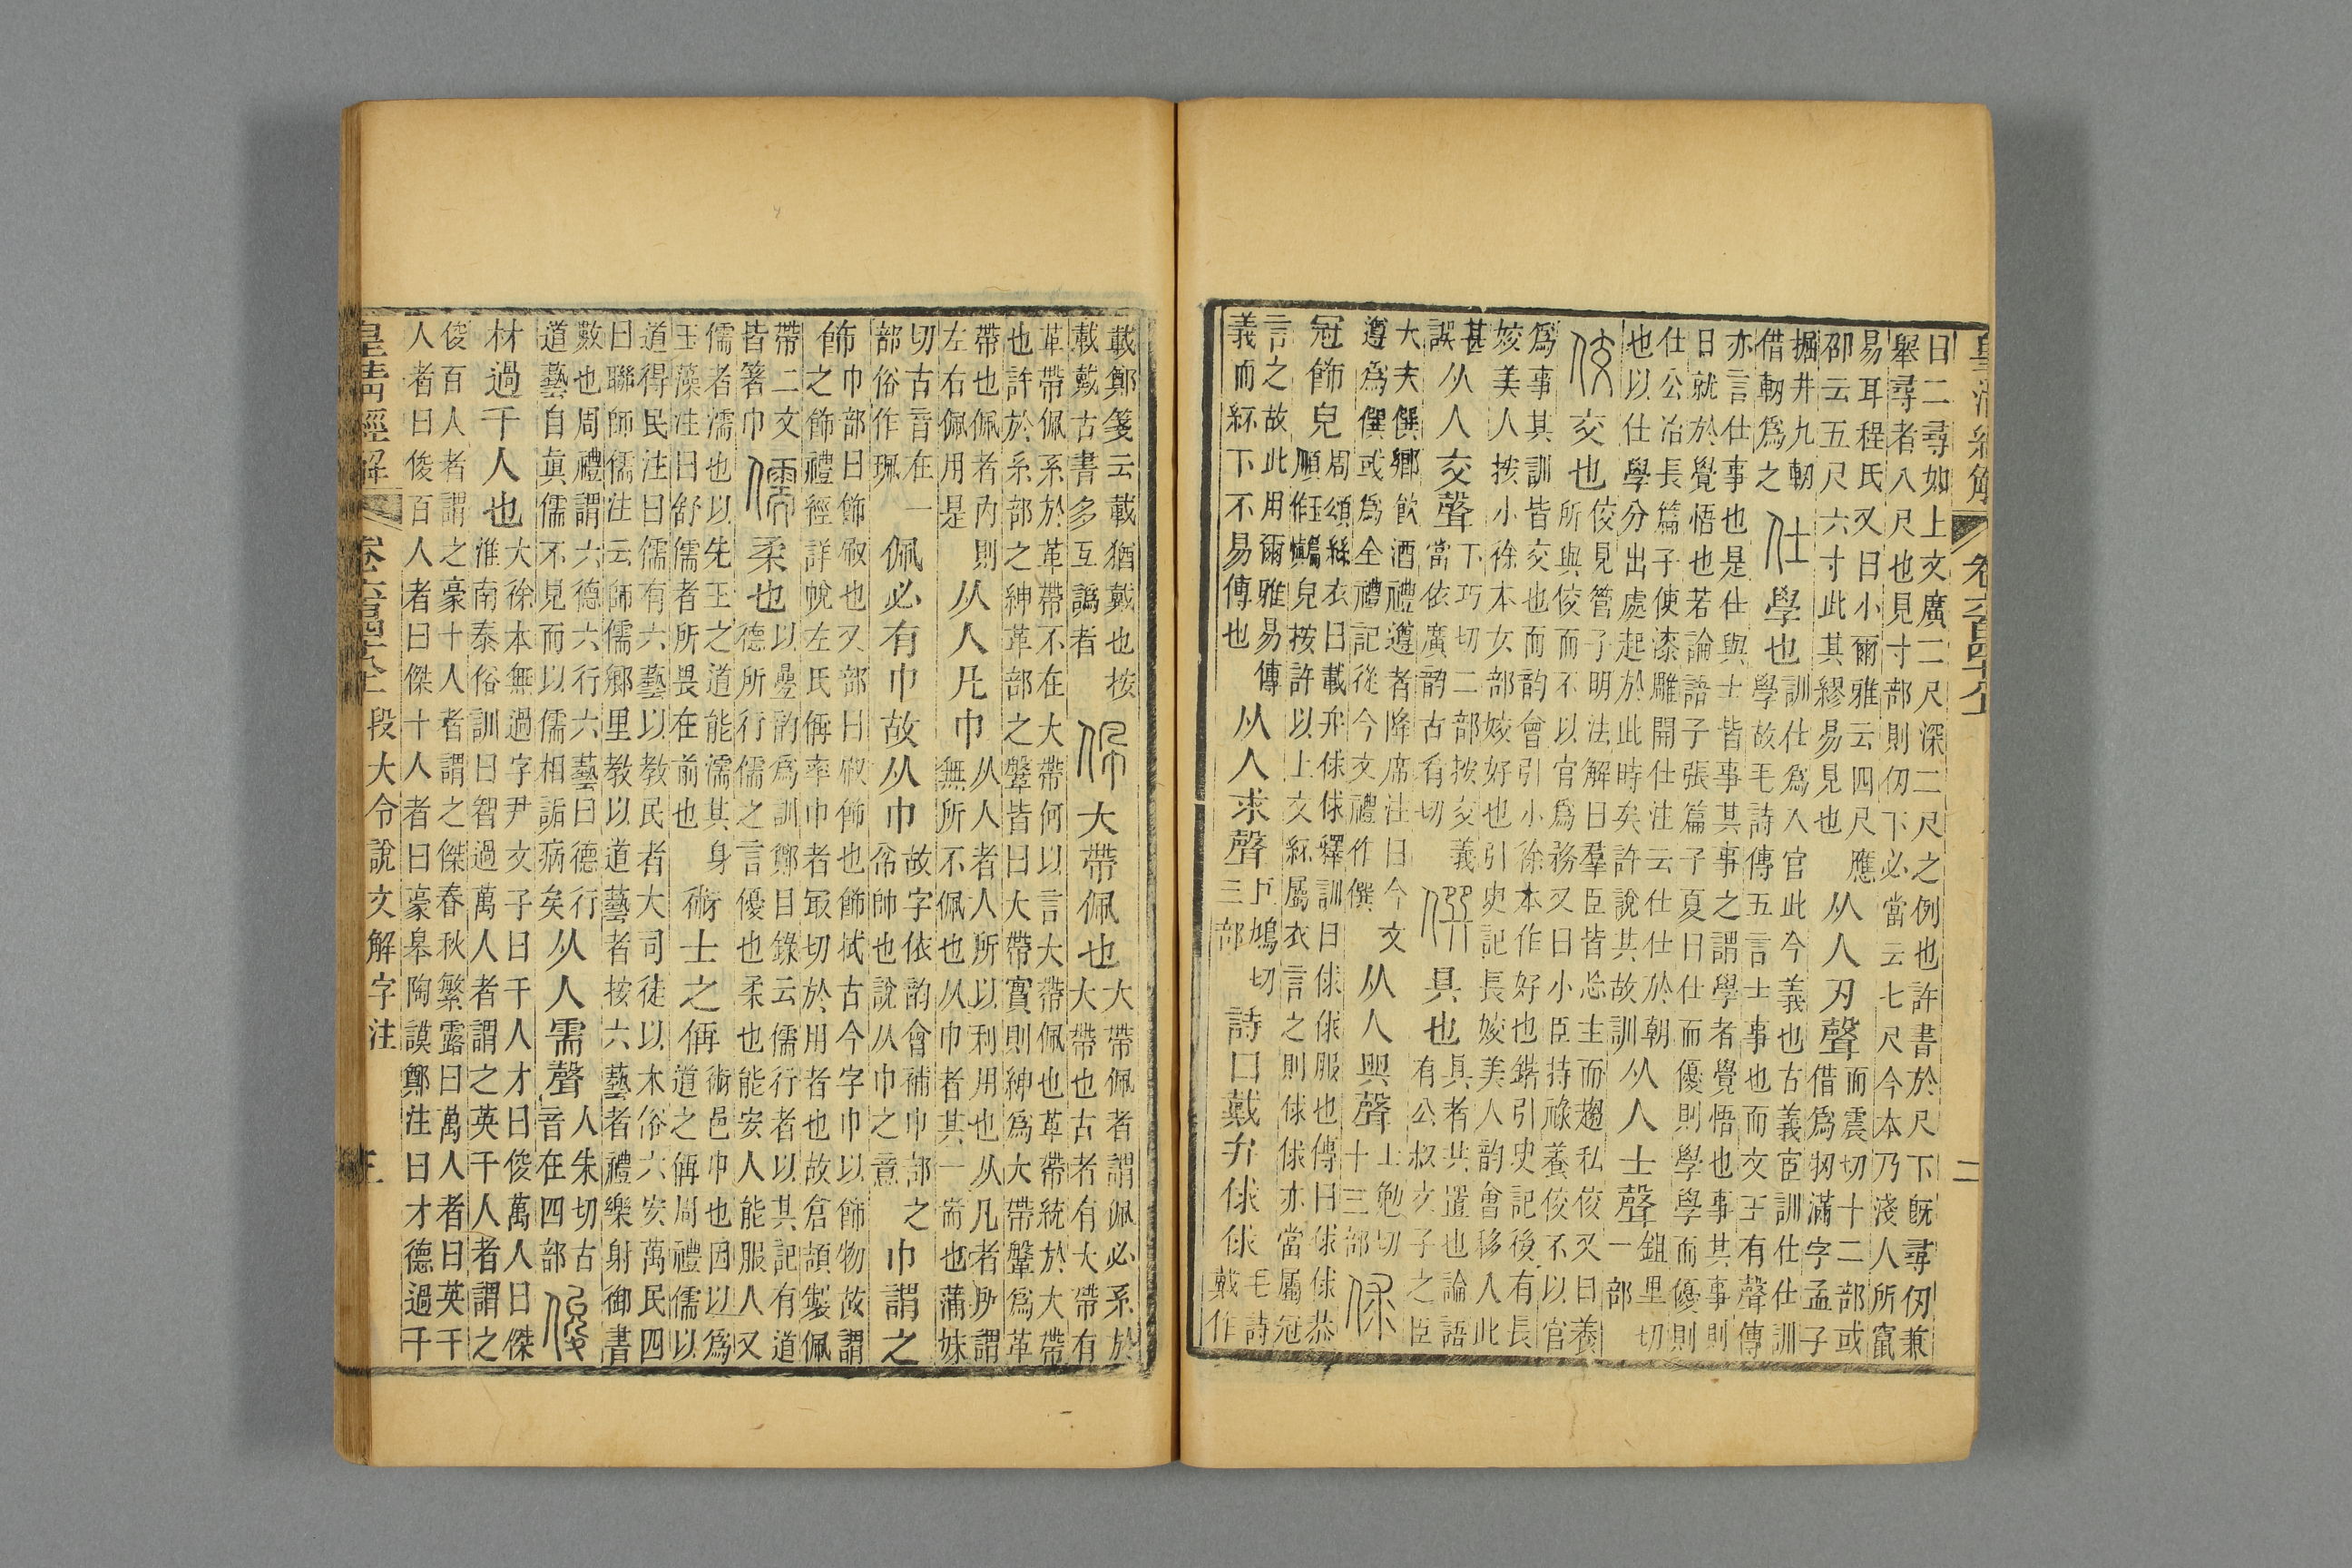 皇清經解 卷六百四十八上 二
曰二尋如上文廣二尺深二尺之例也許書於尺下既尋仞兼
舉尋者八尺也見寸部則仞下必當云七尺今本乃淺人所竄
易耳程氏又曰小爾雅云四尺應
邵云五尺六寸此其繆易見也
从人刃聲
而震切十二部或
借爲牣滿字孟子
掘井九軔
借軔爲之
仕 學也
訓仕爲入官此今義也古義宦訓仕仕訓
學故毛詩傳五言士事也而文王有聲傳
亦言仕事也是仕與士皆事其事之謂學者覺悟也事其事則
日就於覺悟也若論語子張篇子夏曰仕而優則學學而優則
仕公冶長篇子使漆雕開仕注云仕仕於朝
也以仕學分出處起於此時矣許說其故訓
从人士聲
鉏里切
一部
佼 交也
佼見管子明法解曰羣臣皆忘主而趨私佼又曰養
所與佼而不以官爲務又曰小臣持祿養佼不以官
爲事其訓皆交也而韵會引小徐本作好也鍇引史記後有長
姣美人按小徐本女部姣好也引史記長姣美人韵會移人此
甚
誤
从人交聲
下巧切二部按交義
當依廣韵古肴切
僎 具也
具者共置也論語
有公叔文子之臣
大夫僎鄉飲酒禮遵者降席注曰今文
遵爲僎或爲全禮記從今文禮作僎
从人巽聲
士勉切
十三部
俅
冠飾皃
周頌絲衣曰載弁俅俅釋訓曰俅俅服也傳曰俅俅恭
順皃按許以上文紑屬衣言之則俅俅亦當屬冠
言之故此用爾雅易傳
義而紑下不易傳也
从人求聲
巨鳩切
三部
詩曰戴弁俅俅
毛詩
戴作
載鄭箋云載猶戴也按
載戴古書多互譌者
佩 大帶佩也
大帶佩者謂佩必系於
大帶也古者有大帶有
革帶佩系於革帶不在大帶何以言大帶佩也革帶統於大帶
也許於糸部之紳革部之鞶皆曰大帶實則紳爲大帶鞶爲革
帶也佩者內則
左右佩用是
从人凡巾
从人者人所以利用也从凡者所謂
無所不佩也从巾者其一耑也蒲妹
切古音在一
部俗作珮
佩必有巾故从巾
故字依韵會補巾部
帗帥也說从巾之意
之巾謂之
飾
巾部曰飾㕞也又部曰㕞飾也飾拭古今字巾以飾物故謂
之飾禮經詳帨左氏偁率巾者㝡切於用者也故倉頡製佩
帶二文
皆箸巾
儒 柔也
以疊韵爲訓鄭目錄云儒行者以其記有道
德所行儒之言優也柔也能安人能服人又
儒者濡也以先王之道能濡其身
玉藻注曰舒儒者所畏在前也
術士之偁
術邑中也因以爲
道之偁周禮儒以
道得民注曰儒有六藝以教民者大司徒以本俗六安萬民四
曰聯師儒注云師儒鄉里教以道藝者按六藝者禮樂射御書
數也周禮謂六德六行六藝曰德行
道藝自眞儒不見而以儒相詬病矣
从人需聲
人朱切古
音在四部
俊
材過千人也
大徐本無過字尹文子曰千人才曰俊萬人曰傑
淮南泰俗訓曰智過萬人者謂之英千人者謂之
俊百人者謂之豪十人者謂之傑春秋繁露曰萬人者曰英千
人者曰俊百人者曰傑十人者曰豪皋陶謨鄭注曰才德過千
皇清經解 卷六百四十八上 段大令說文解字注 三